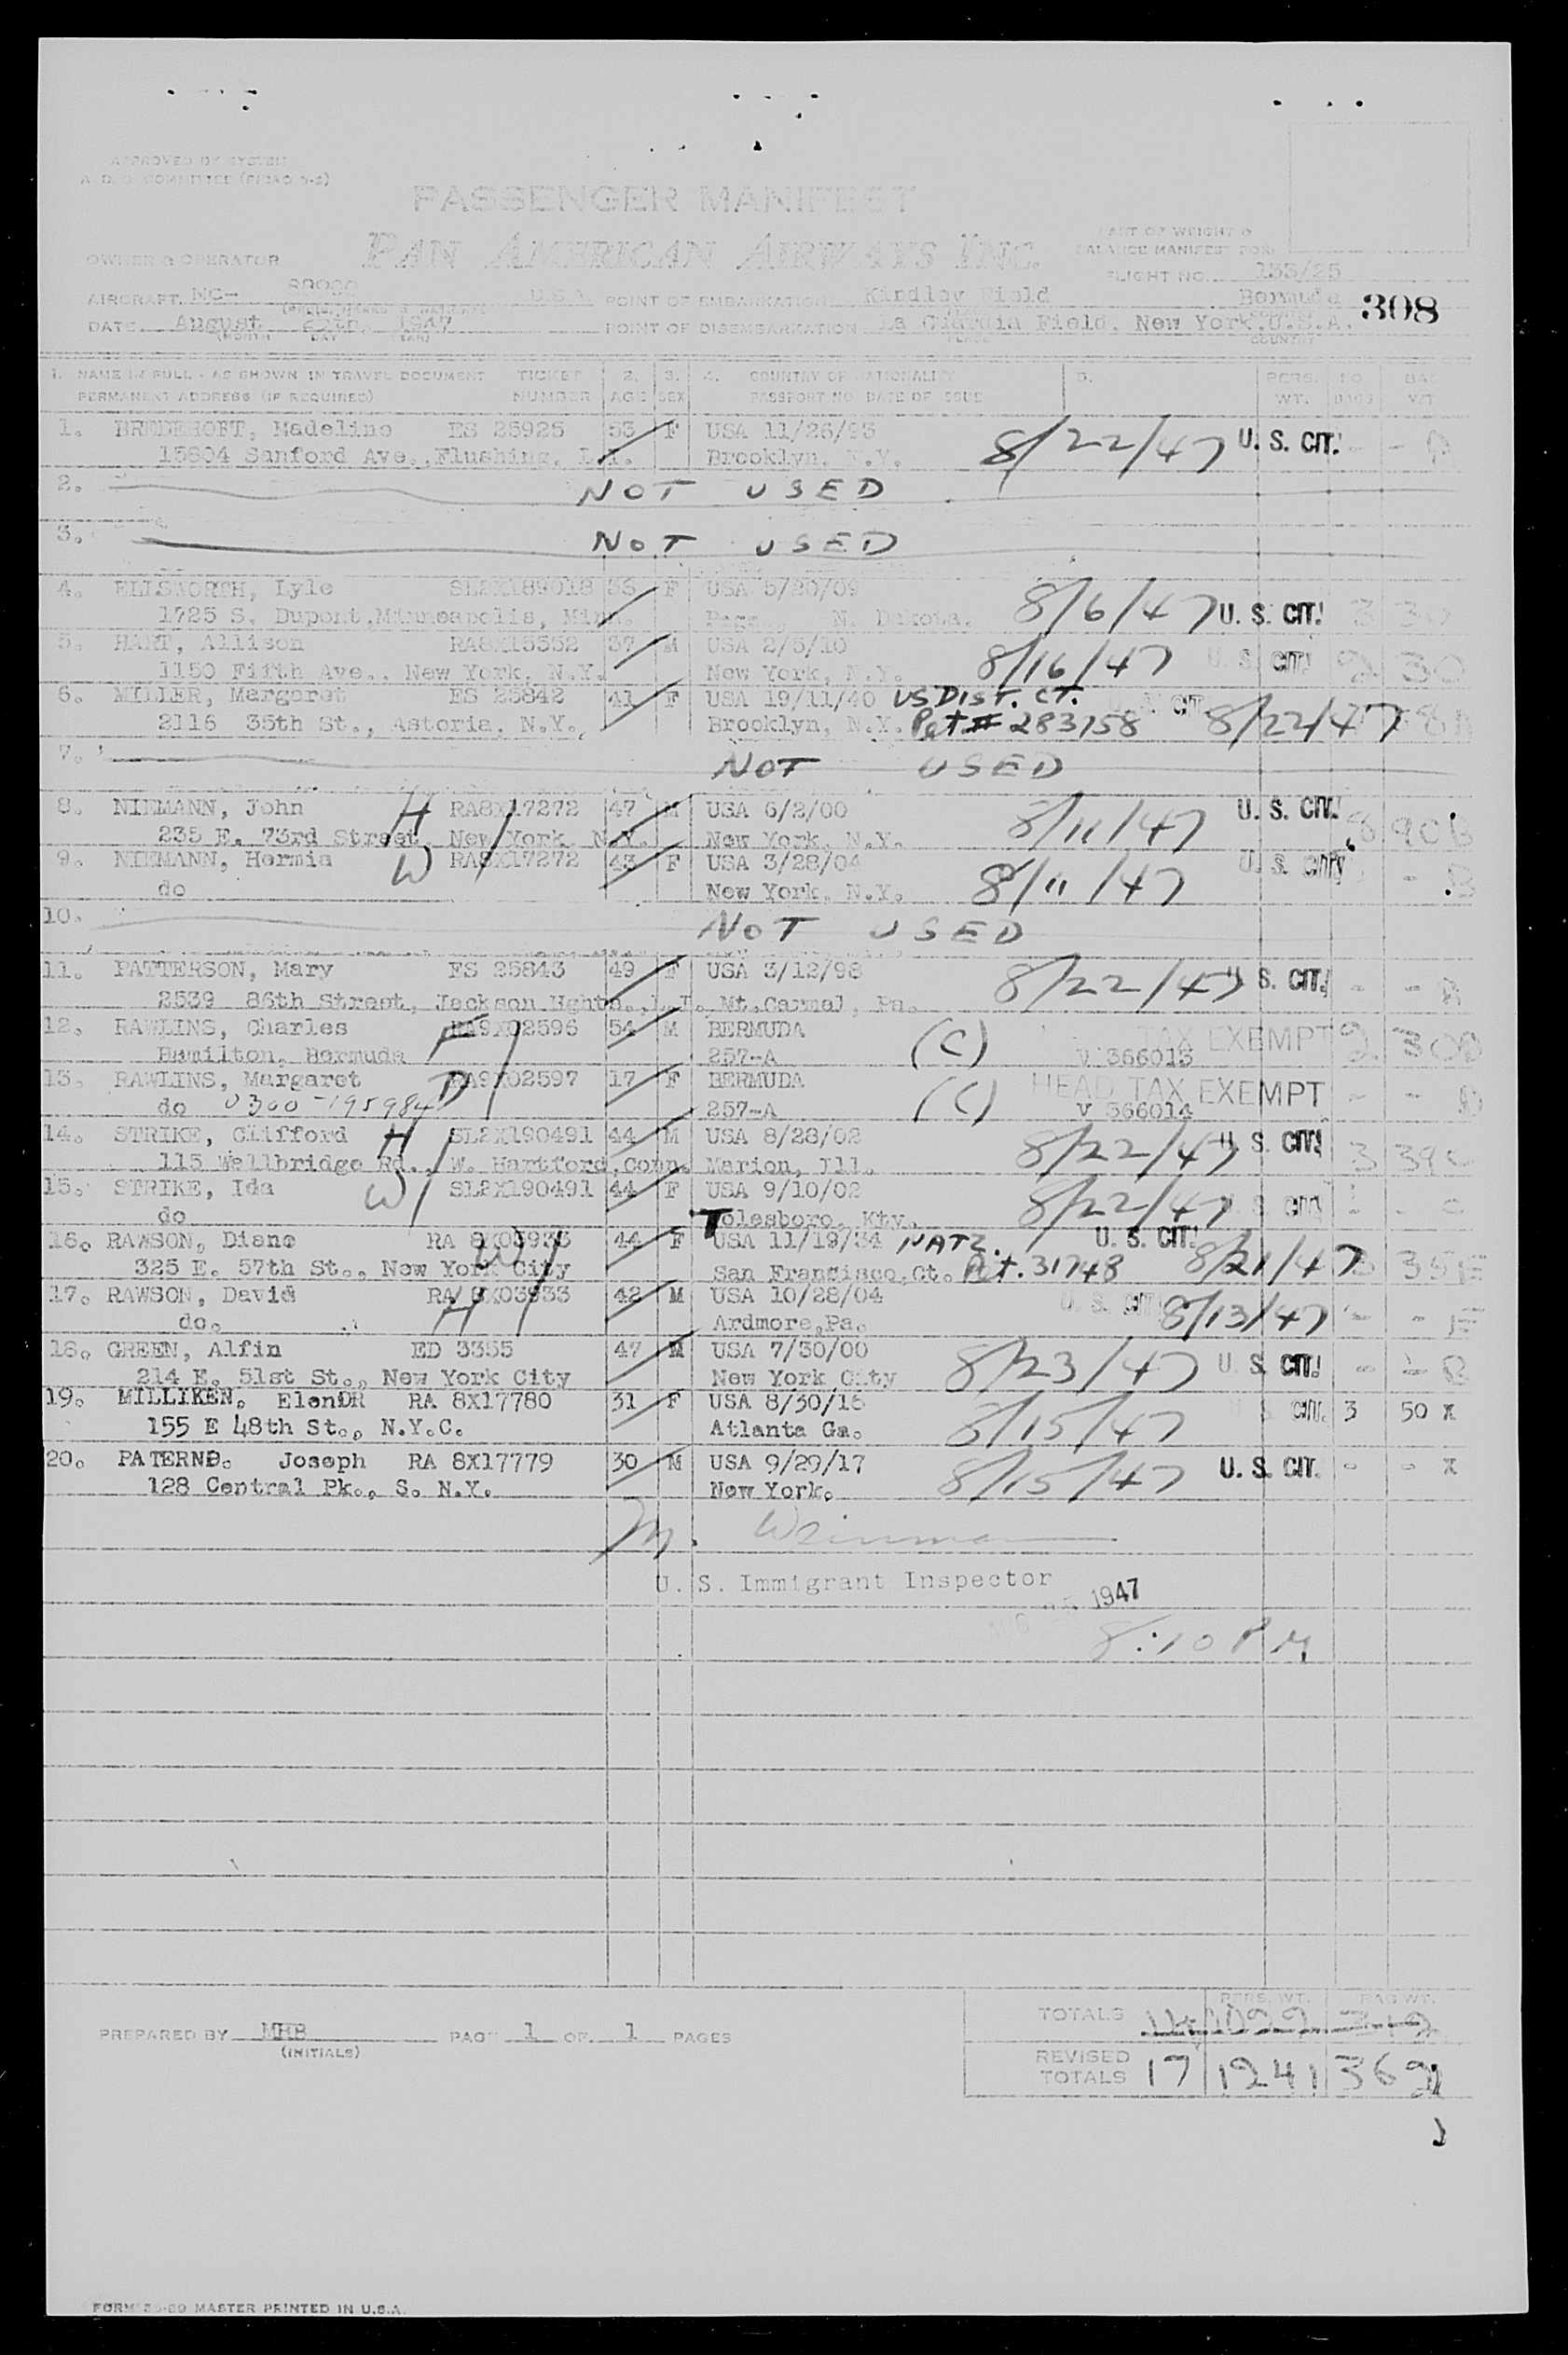 APPROVED BY SYSTEM
PASSENGER MANIFEST
PAN AMERICAN AIRWAYS INC.
PART OF WEIGHT &
BALANCE MANIFEST FOR
OWNER & OPERATOR
FLIGHT NO. 133/25
AIRCRAFT NC- U.S.A. POINT OF EMBARKATION Kindley Field Bermuda 308
DATE August 25th, 1947 POINT OF DISEMBARKATION La Guardia Field, New York, U.S.A.
(MONTH DAY YEAR) PLACE COUNTRY
1. NAME IN FULL - AS SHOWN IN TRAVEL DOCUMENT TICKET 2. 3. 4. COUNTRY OF NATIONALITY 5. PERS. NO. BAG
PERMANENT ADDRESS (IF REQUIRED) NUMBER AGE SEX PASSPORT NO. DATE OF ISSUE WT. BAGS WT
1. BREDEHOFT, Madeline ES 25925 53 F USA 11/26/93 8/22/47 U. S. CIT. - -
15804 Sanford Ave., Flushing, L.I. Brooklyn, N.Y.
2. NOT USED
3. NOT USED
4. ELLSWORTH, Lyle SL2X189018 F USA 5/20/09 8/6/47 U. S. CIT. 3 30
1725 S. Dupont, Minneapolis, Minn. N. Dakota.
5. HART, Allison RA8X15552 37 M USA 2/5/10 8/16/47 U. S. CIT. 2 30
1150 Fifth Ave., New York, N.Y. New York, N.Y.
6. MILLER, Margaret ES 25842 41 F USA 19/11/40 US DIST. CT.
2116 35th St., Astoria, N.Y. Brooklyn, N.Y. Pet # 283758 8/22/47
7. NOT USED
8. NIEMANN, John H RA8X17272 47 M USA 6/2/00 8/11/47 U. S. CIT. 3 90
235 E. 73rd Street, New York, N.Y. New York, N.Y.
9. NIEMANN, Hermia W RA8X17272 43 F USA 3/28/04 8/11/47 U. S. CIT. -
do New York, N.Y.
10. NOT USED
11. PATTERSON, Mary ES 25843 49 F USA 3/12/98 8/22/47 U. S. CIT. - -
2539 86th Street, Jackson Hghts., L.I. Mt. Carmel, Pa.
12. RAWLINS, Charles F RA9X02596 54 M BERMUDA (C) TAX EXEMPT 2 30
Hamilton, Bermuda 257-A V 366013
13. RAWLINS, Margaret D RA9X02597 17 F BERMUDA (C) HEAD TAX EXEMPT - -
do 0300-195984 257-A V 366014
14. STRIKE, Clifford H SL2X190491 44 M USA 8/28/02 8/22/47 U. S. CIT. 3 39
115 Wellbridge Rd., W. Hartford, Conn. Marion, Ill.
15. STRIKE, Ida W SL2X190491 44 F USA 9/10/02 8/22/47 U. S. CIT. - -
do Tolesboro, Kty.
16. RAWSON, Diane W RA 8X03933 44 F USA 11/19/34 NATZ. U. S. CIT. 8/21/47 35
325 E. 57th St., New York City San Francisco, Ct. Pet. 31748
17. RAWSON, David H RA 8X03933 42 M USA 10/28/04 U. S. CIT. 8/13/47 - -
do. Ardmore, Pa.
18. GREEN, Alfin ED 3355 47 M USA 7/30/00 8/23/47 U. S. CIT. - -
214 E. 51st St., New York City New York City
19. MILLIKEN, ElenOR RA 8X17780 31 F USA 8/30/16 8/15/47 U. S. CIT. 3 50 X
155 E 48th St., N.Y.C. Atlanta Ga.
20. PATERNO. Joseph RA 8X17779 30 M USA 9/29/17 8/15/47 U. S. CIT. - - X
128 Central Pk., S. N.Y. New York.
M.
U. S. Immigrant Inspector
1947
8:10 PM
PERS. WT. BAG WT.
TOTALS 14 1099 312
PREPARED BY MHB PAGE 1 OF 1 PAGES
(INITIALS)
REVISED
TOTALS 17 1241 362
MASTER PRINTED IN U.S.A.